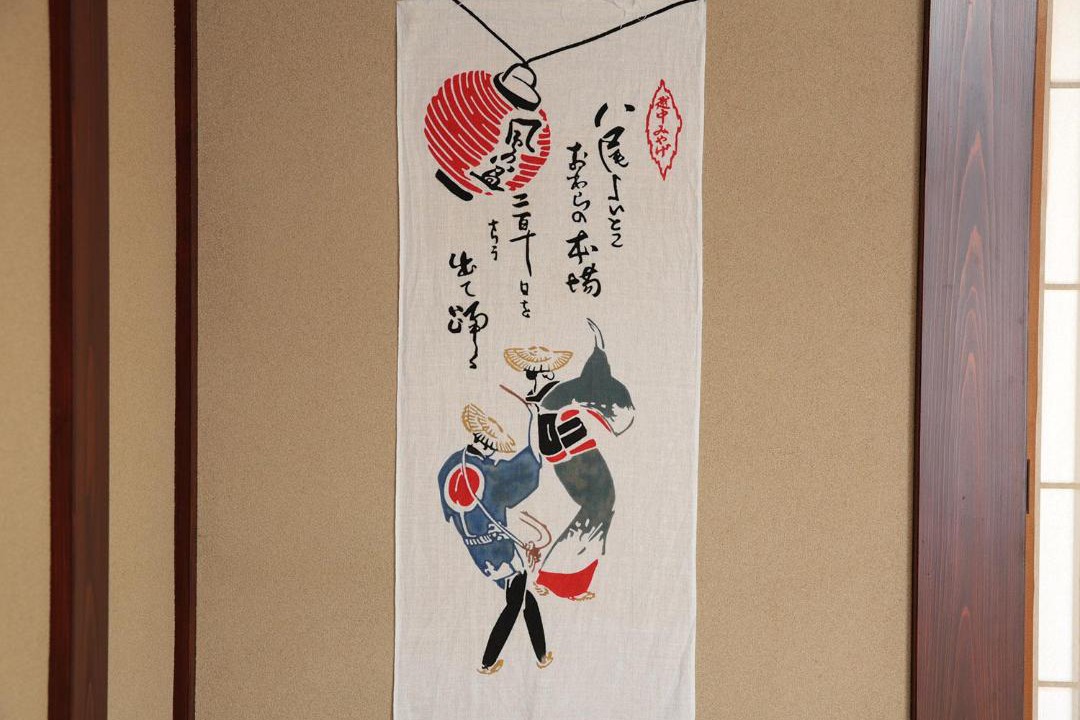 越中みやげ
八尾よいとこ
おわらの本場
風の盆
二百十日を
出て踊る